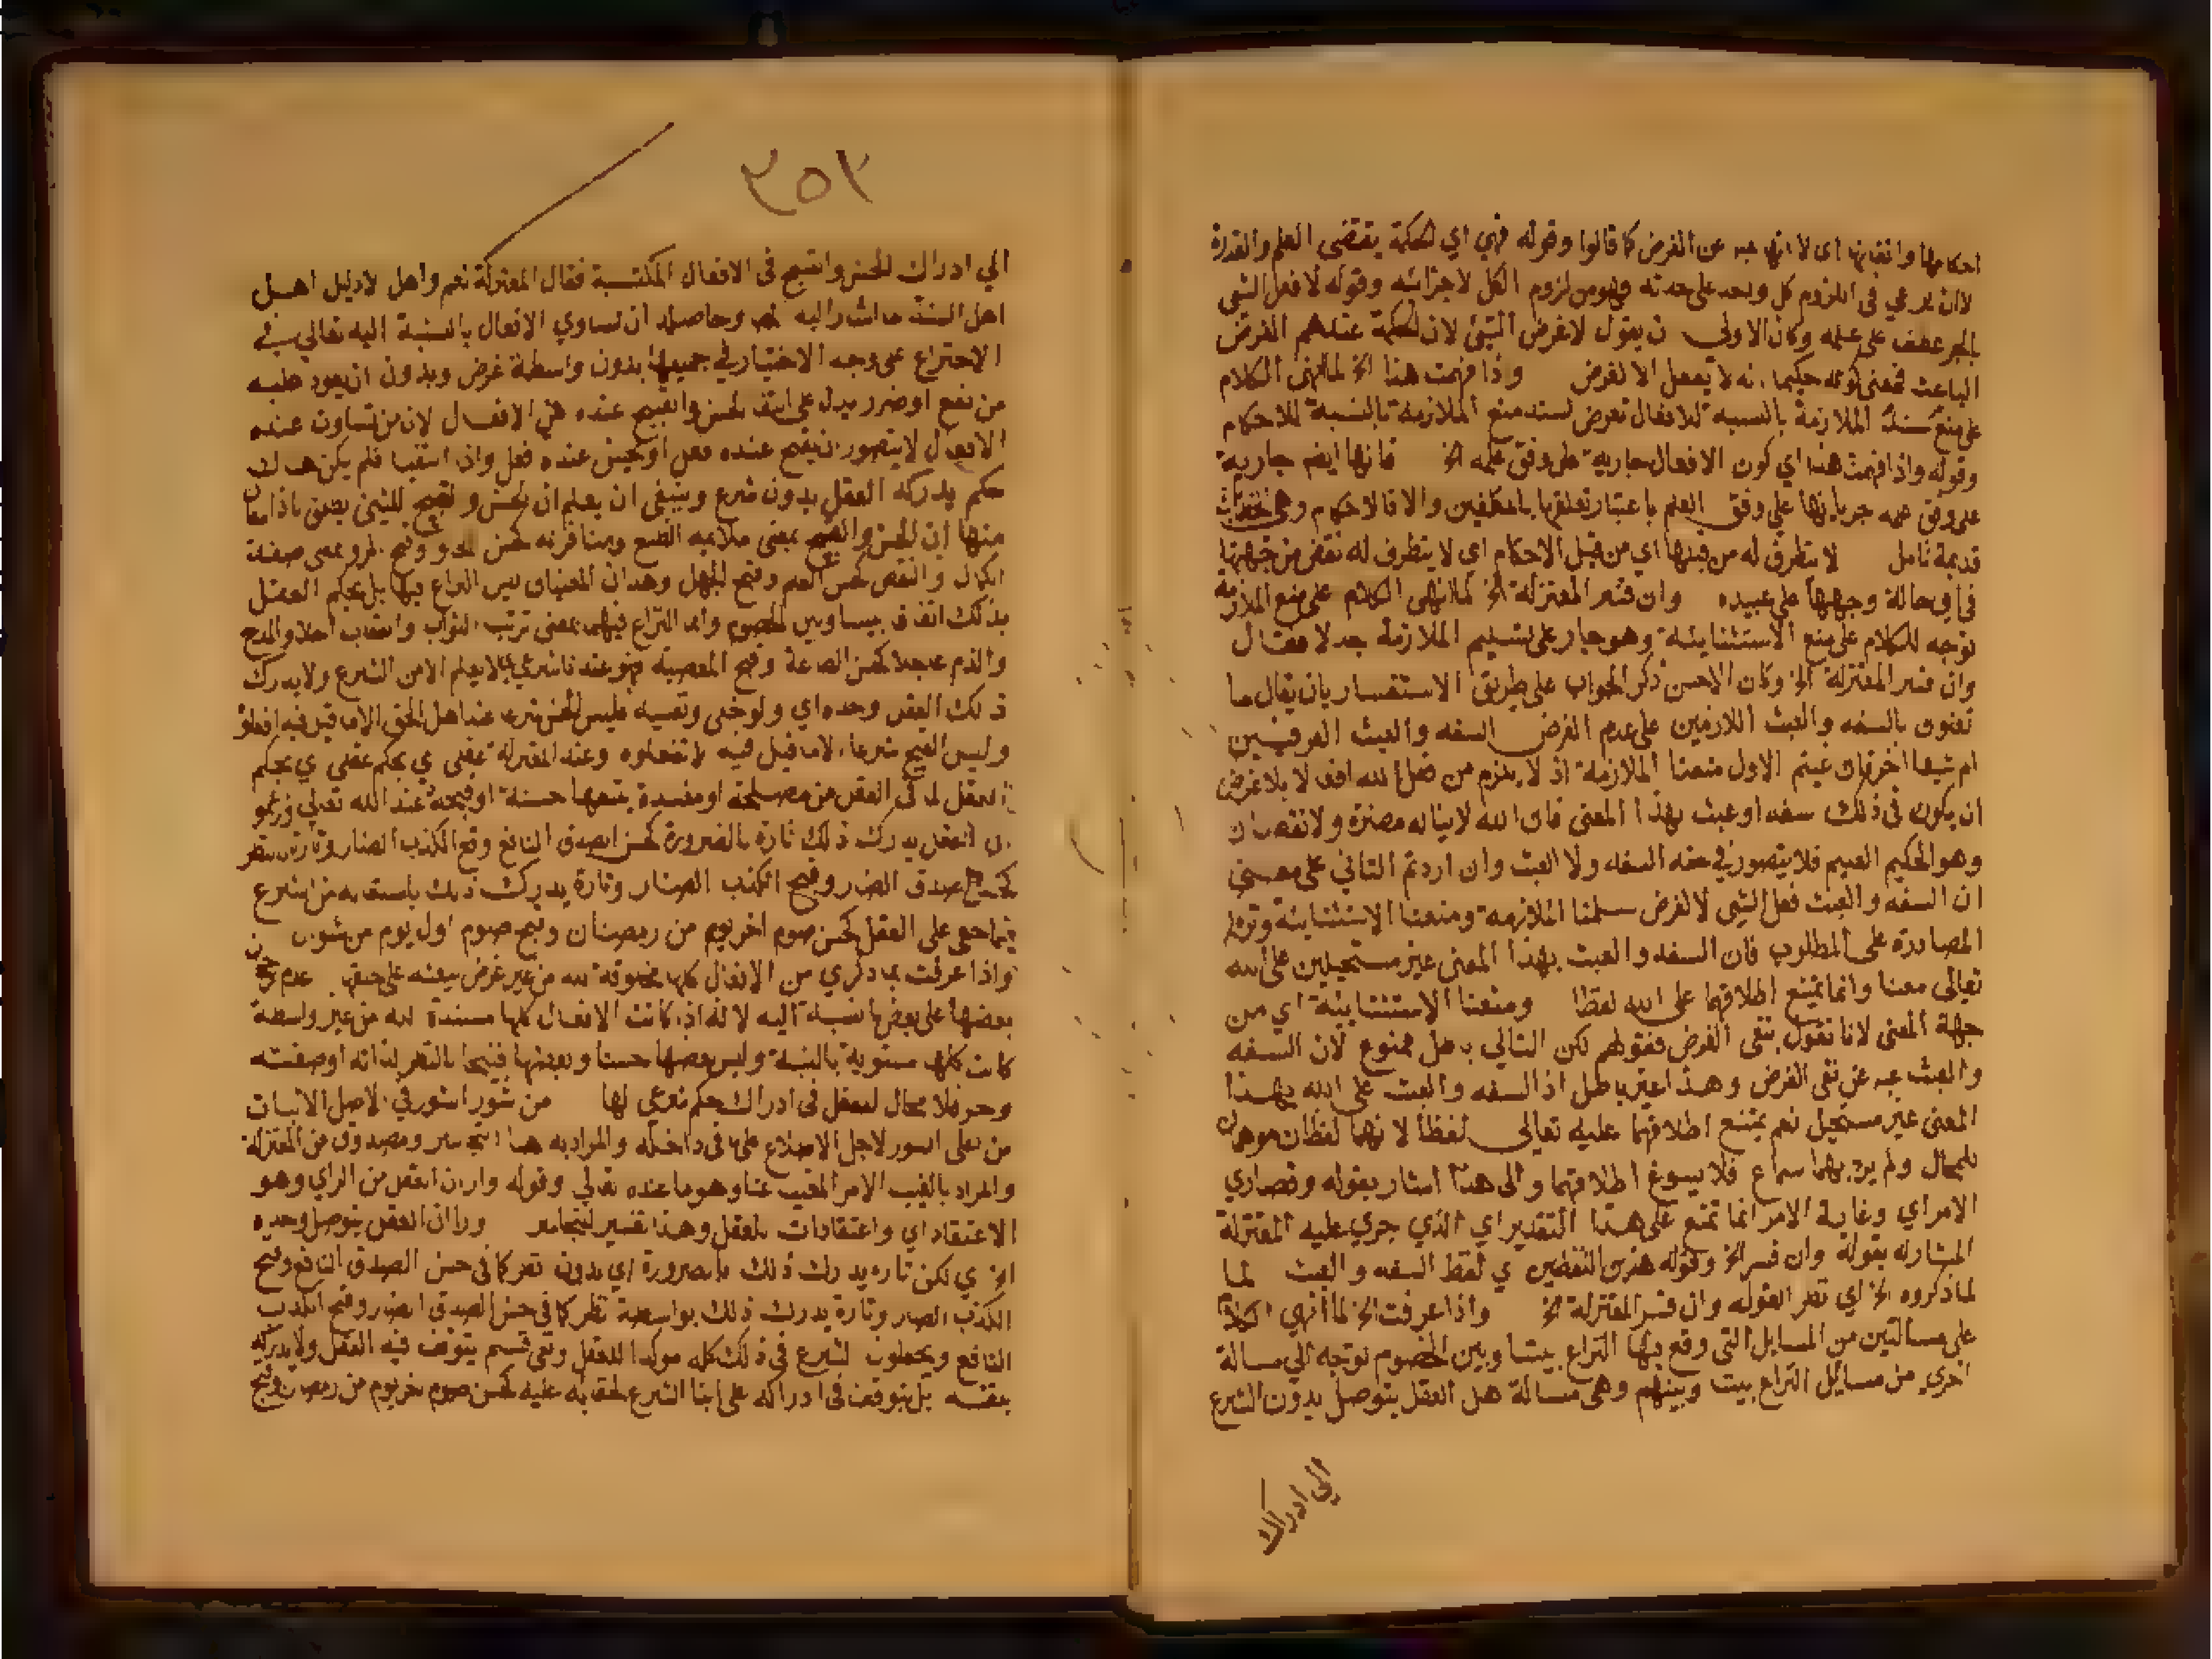 احكامها واتقانها اى لا انها عبه عن الغرض كما قالوا وقوله فهي اي الحكمة يقتضى العلم والقدرة
لا ان يدعي فى اللزوم كل واحد على حدته وهو من لزوم الكل لاجزائه وقوله لا فعل الشي
بالجر عطف على علمه وكان الاولى ان يقول لا غرض الشي لان الحكمة عندهم الغرض
الباعث فمعنى كونه حكيما انه لا يفعل الا لغرض واذا فهمت هذا الخ لما انهى الكلام
على منع سند الملازمة بالنسبة للافعال تعرض لسند منع الملازمة بالنسبة للاحكام
وقوله واذا فهمت هذا اي كون الافعال جارية على وفق علمه الخ فانها ايضا جارية
على وفق علمه جريانها على وفق العلم باعتبار تعلقها بالمكلفين والا فالاحكام
قديمة تامل لا يتطرق له من قبلها اي من قبل الاحكام اي لا يتطرف له نقض من جهتها
فى اي حالة وجهها على عبيده وان فسر المعتزلة الخ لما انهى الكلام على منع الملازمة
توجه للكلام على منع الاستثنائية وهو جار على تسليم الملازمة جدلا فقال
وان فسر المعتزلة الخ وكان الاحسن ذكر الجواب على طريق الاستفسار بان يقال ما
تعنون بالسفه والعبث اللازمين على عدم الغرض السفه والعبث العرفيين
ام شيئا اخر فان عنيتم الاول منعنا الملازمة اذ لا يلزم من فعل الله افعالا بلا غرض
ان يكون فى ذلك سفه او عبث بهذا المعنى فان الله لا يناله مضرة ولا نقصان
وهو الحكيم العليم فلا يتصور في حقه السفه ولا العبث وان اردتم الثاني على معنى
ان السفه والعبث فعل الشي لا لغرض سلمنا الملازمة ومنعنا الاستثنائية
المصادرة على المطلوب فان السفه والعبث بهذا المعنى غير مستحيلين على الله
تعالى معنا وانما يمتنع اطلاقهما على الله لفظا ومنعنا الاستثنايئة اي من
جهة المعنى لانا نقول بنفى الغرض فقولهم لكن التالي باطل ممنوع لان السفه
والعبث عبه عن نفى الغرض وهذا غير باطل اذ السفه والعبث على الله بهذا
المعنى غير مستحيل نعم يمتنع اطلاقهما عليه تعالى لفظا لانهما لفظان موهمان
للمحال ولم يرد بهما سماع فلا يسوغ اطلاقهما والى هذا اشار بقوله وقصارى
الامر اي وغاية الامر انما تمنع على هذا التقدير اي الذي جري عليه المعتزلة
المشار له بقوله وان فسر الخ وقوله هذين اللفظين اي لفظ السفه والعبث لما
لما ذكروه الخ اي نظر لقوله وان فسر المعتزلة الخ واذا عرفت الخ لما انهى الكلام
على مسالتين من المسايل التى وقع بها النزاع بيننا وبين الخصوم توجه الى مسالة
اخرى من مسايل النزاع بيننا وبينهم وهى مسالة هل العقل يتوصل بدون الشرع
الى ادراك
٣٥٢
الي ادراك الحسن والقبح فى الافعال المكتسبة فقال المعتزلة نعم واهل لا دليل اهل
اهل السنة ما اشار اليه وحاصله ان تساوي الافعال بالنسبة اليه تعالى في
الاختراع على وجه الاختيار في جميعها بدون واسطة غرض وبدون ان يعود عليه
من نفع او ضرر يدل على انتفا الحسن والقبيح عنده فى الافعال لان من تساوت عنده
الافعال لا يتصور ان يقبح عنده فعل او يحسن عنده فعل واذا انتفيا فلم يكن هناك
حكم يدركه العقل بدون شرع وينبغى ان يعلم ان الحسن والقبح للشئ يصدق باذا معان
منها ان الحسن والقبح بمعنى ملايمة الطبع ومنافرته كحسن الحلو وقبح المر وبمعنى صفة
الكمال والنقص كحسن العلم وقبح الجهل وهذان المعنيان ليس النزاع فيهما بل يحكم العقل
بذلك اتفاق بيننا وبين الخصوم وانما النزاع فيهما بمعنى ترتب الثواب والعقاب اجلا والمدح
والذم عاجلا كحسن الطاعة وقبح المعصية فهو عندنا شرعي لا يعلم الا من الشرع ولا يدرك
ذلك العقل وحده اي ولو خلى ونفسه فليس الحسن شرعا عند اهل الحق الا ما قيل فيه افعلوه
وليس القبيح شرعا الا ما قيل فيه لا تفعلوه وعند المعتزلة عقلى اي يحكم عقلى اي يحكم
العقل لما فى الفعل من مصلحة او مفسدة يتبعها حسنه او قبحه عند الله تعالى وزعموا
ان العقل يدرك ذلك تارة بالضرورة كحسن الصدق النافع وقبح الكذب الضار وتارة بنظر
كحسن الصدق الضار وقبح الكذب الضار وتارة يدرك ذلك باستعانة من الشرع
فيما خفى على العقل كحسن صوم اخر يوم من رمضان وقبح صوم اول يوم من شوال
واذا عرفت بما ذكري من الافعال كلها مخلوقة لله من غير غرض يبعثه على خلقها عدم
بعضها على بعض بالنسبة اليه لانه اذا كانت الافعال كلها مستندة لله من غير واسطة
كانت كلها مستوية بالنسبة وليس بعضها حسنا وبعضها قبيحا بالنظر لذاته او صفته
وحر فلا مجال للعقل فى ادراك حكم شرعي لها من تسور السور في الاصل الاتيان
من اعلى السور لاجل الاطلاع على ما فى داخله والمراد به هنا التجاسر ومصدوق من المعتزلة
والمراد بالغيب الامر المغيب عنا وهو ما عنده تعالى وقوله واران العقل من الراي وهو
الاعتقاد اي واعتقادات للعقل وهذا تفسير لتجاسر وراا ان العقل يتوصل وحده
الخ اي لكن تارة يدرك ذلك بالضرورة اي بدون نظر كما فى حسن الصدق النافع وقبح
الكذب الضار وتارة يدرك ذلك بواسطة نظر كما فى حسن الصدق الضار وقبح الكذب
النافع ويجعلون الشرع فى ذلك كله موكدا للعقل وبقى قسم يتوقف فيه العقل ولا يدركه
بنفسه بل يتوقف فى ادراكه على انبا الشرع لخفائه عليه كحسن صوم اخر يوم من رمضان وقبح